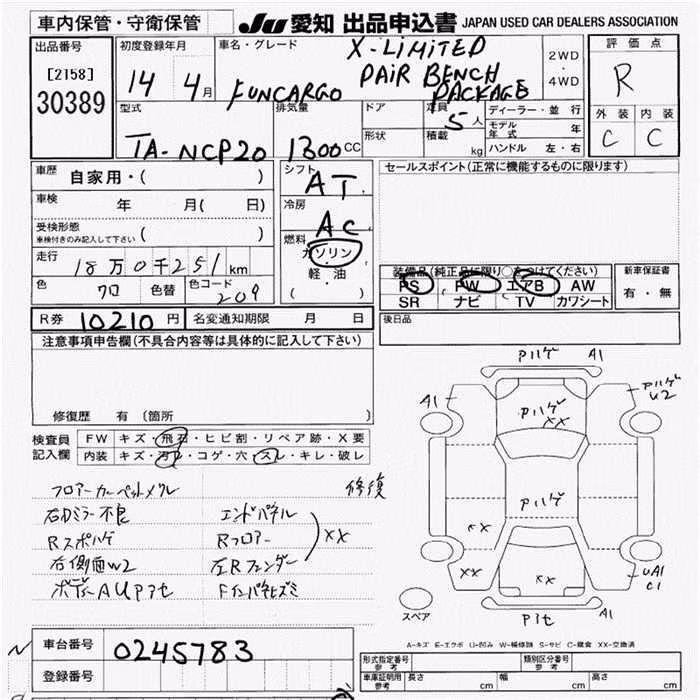 車内保管・守衛保管
JU 愛知 出品申込書 JAPAN USED CAR DEALERS ASSOCIATION
出品番号
[2158]
30389
初度登録年月
14 4月
車名・グレード
X-LIMITED
PAIR BENCH
FUNCARGO PACKAGE
2WD
・
4WD
評価点
R
外装 内装
C C
型式
TA-NCP20
排気量
1300CC
ドア
形状
定員
5人
積載
kg
ディーラー・並行
モデル年式 年
ハンドル 左・右
車歴
自家用・( )
車検 年 月( 日)
受検形態
車検付きのみ記入して下さい ( )
走行
18万0千251km
色 クロ 色替 色コード 209
シフト
AT
冷房
AC
燃料
ガソリン
軽・油
( )
セールスポイント(正常に機能するものに限ります)
装備品(純正品に限り○をつけてください)
PS PW エアB AW
SR ナビ TV カワシート
新車保証書
有・無
R券 10210円 名変通知期限 月 日
後日品
注意事項申告欄(不具合内容等は具体的に記入して下さい)
修復歴 有 〔箇所 〕
検査員
記入欄
FW キズ・飛石・ヒビ割・リペア跡・X要
内装 キズ・汚レ・コゲ・穴・スレ・キレ・破レ
フロアーカーペットメクレ 修復
右Dミラー不良 エンドパネル
Rスポハゲ Rフロアー XX
右側面W2 左Rフェンダー
ボディーAUPアセ Fインパネヒズミ
Pハゲ A1
A1 Pハゲ XX Pハゲ U2
Pハゲ
XX
XX XX UA1 C1
スペア Pアセ
A-キズ E-エクボ U-凹み W-補修跡 S-サビ C-腐食 XX-交換済
車台番号 0245783
登録番号
形式指定番号 参考 類別区分番号 参考
車庫証明用 参考 長さ cm 幅 cm 高さ cm